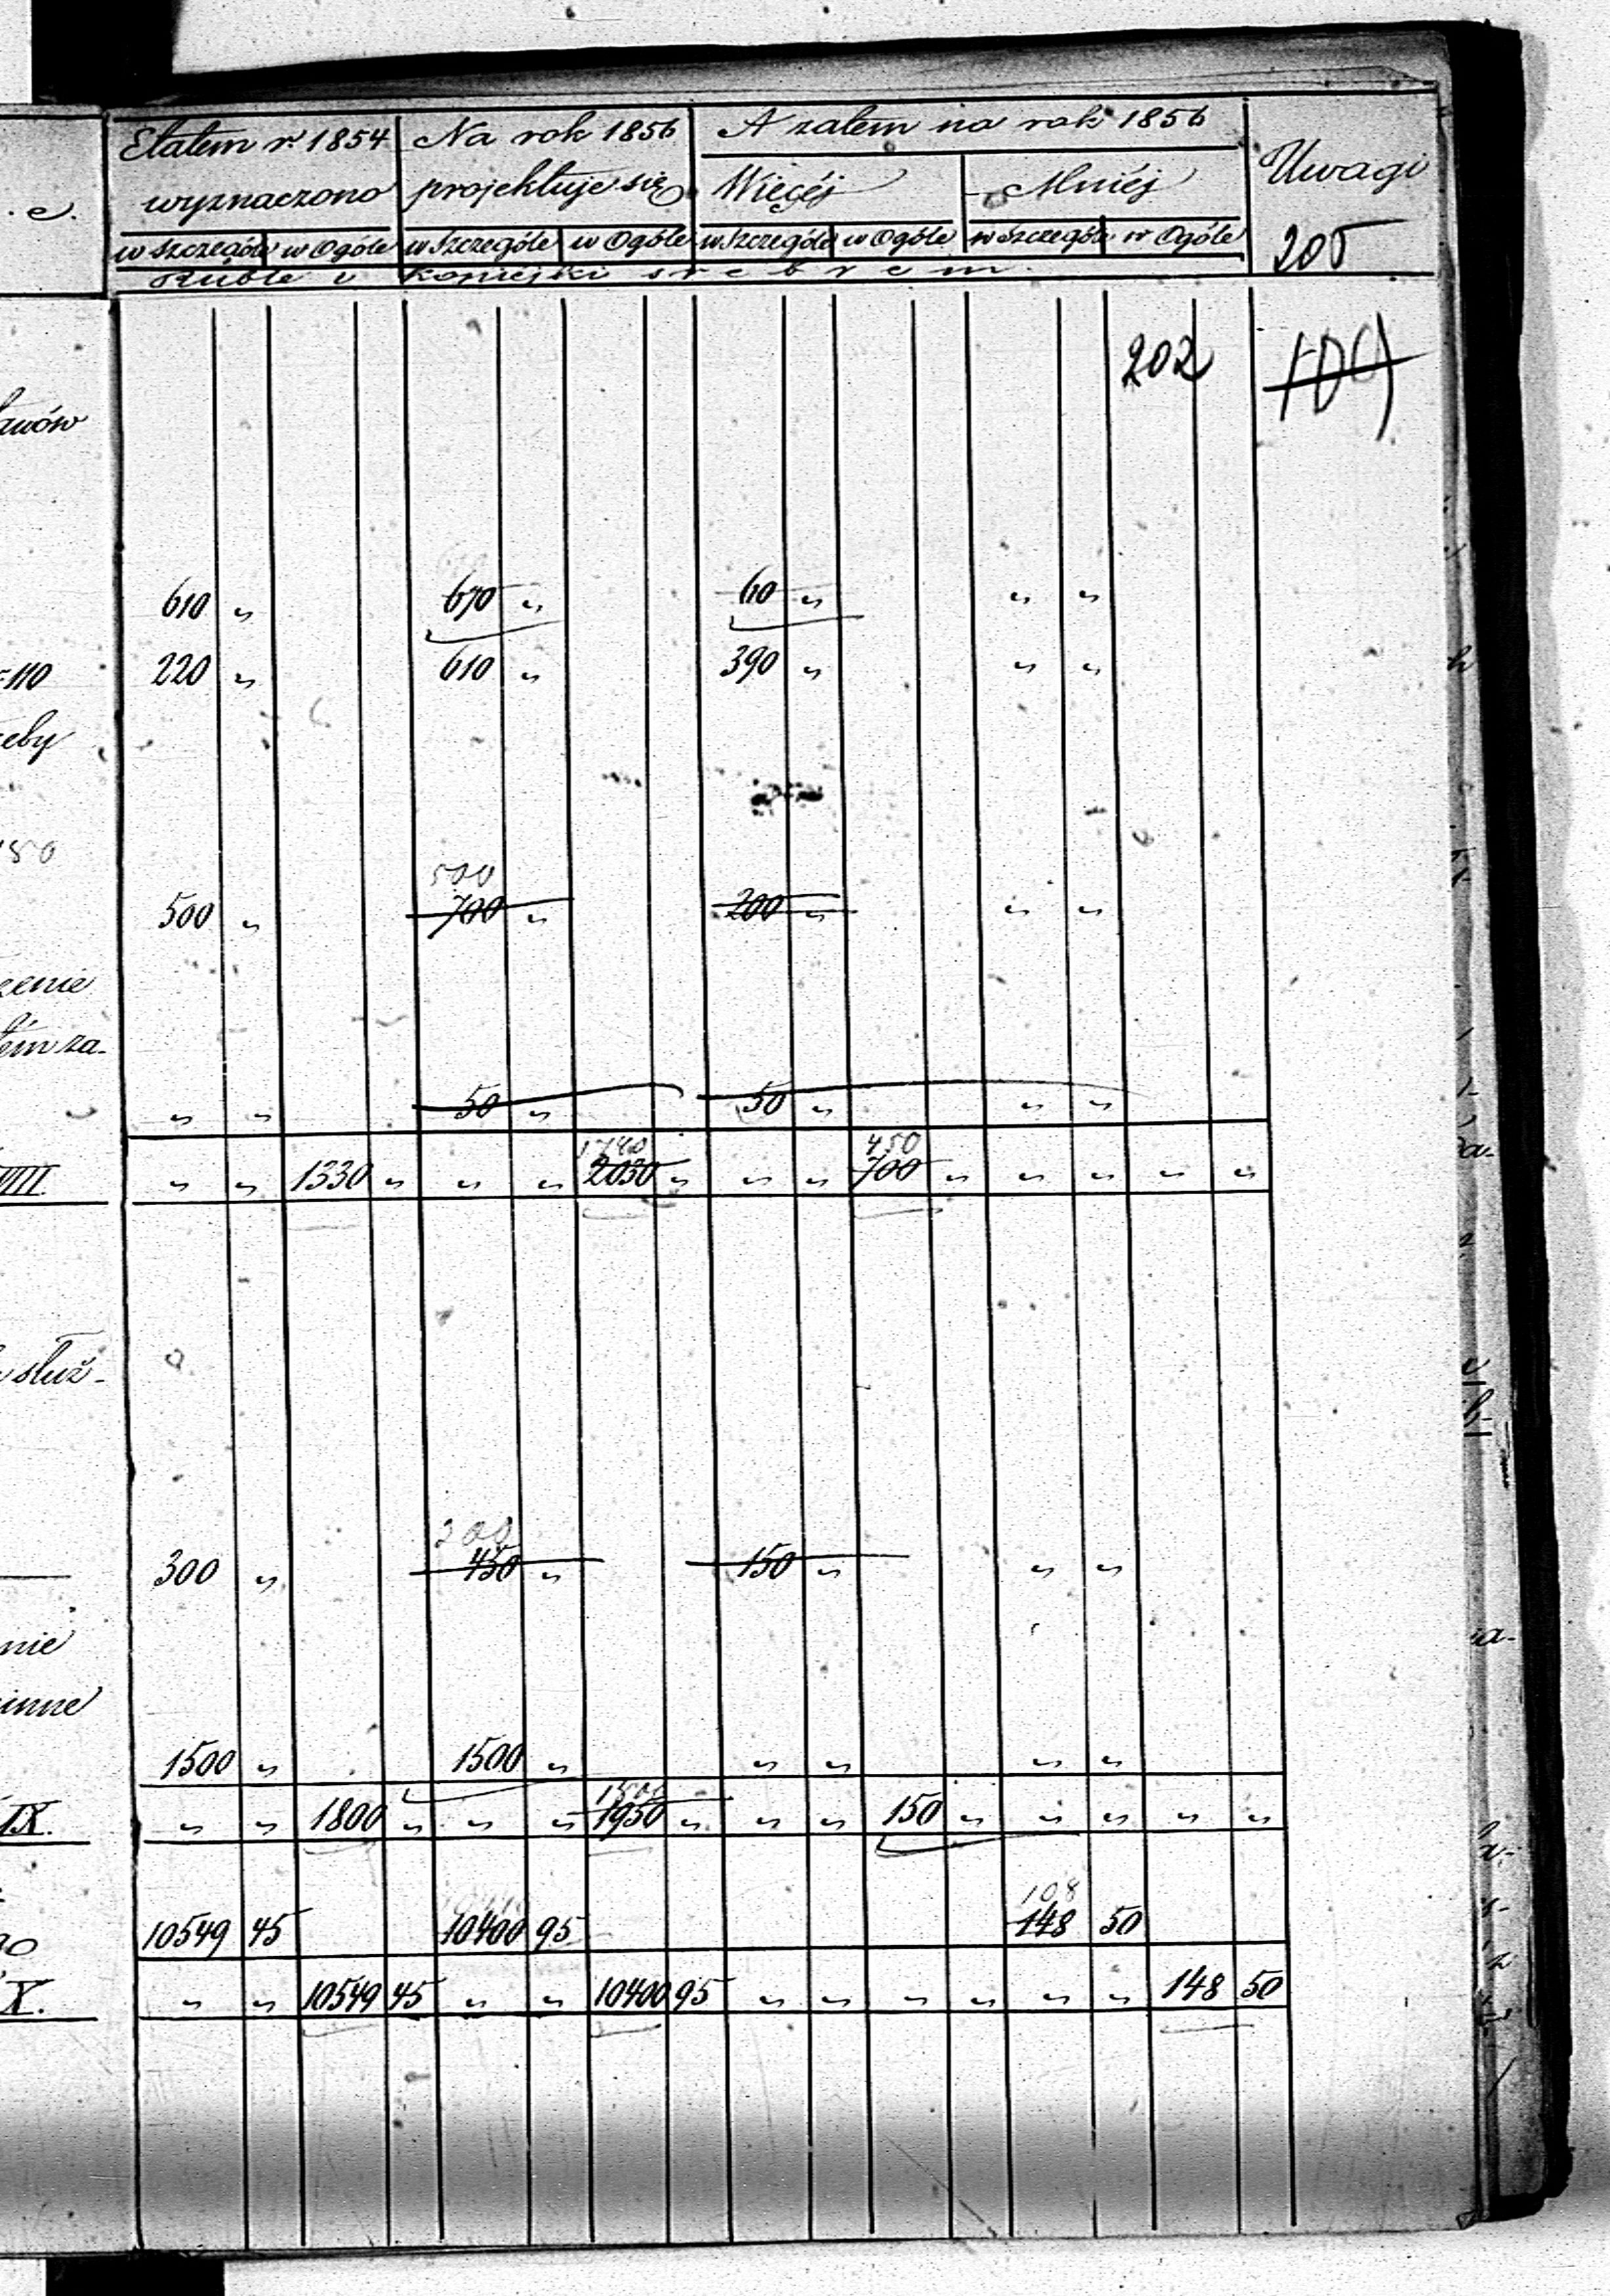 Etatem r. 1854 Na rok 1856 A zatem na rok 1856 Uwagi
wyznaczono projektuje się Więcéj Mniéj
w szczególe w Ogóle w szczególe w Ogóle w szczególe w Ogóle w szczególe w Ogóle 205
Ruble i kopiejki srebrem.
202
610 " 670 " 60 " " "
=110 220 " 610 " 390 " " "
500
500 " 700 " 200 " " "
" " 50 " 50 " " "
450
VIII. " " 1330 " " " 2030 " " " 700 " " " " "
służ-
300 " 450 " 150 " " "
nie
inne
1500 " 1500 " " " " "
IX. " " 1800 " " " 1950 " " " 150 " " " " "
108
10549 45 10400 95 148 50
X. " " 10549 45 " " 10400 95 " " " " " " 148 50